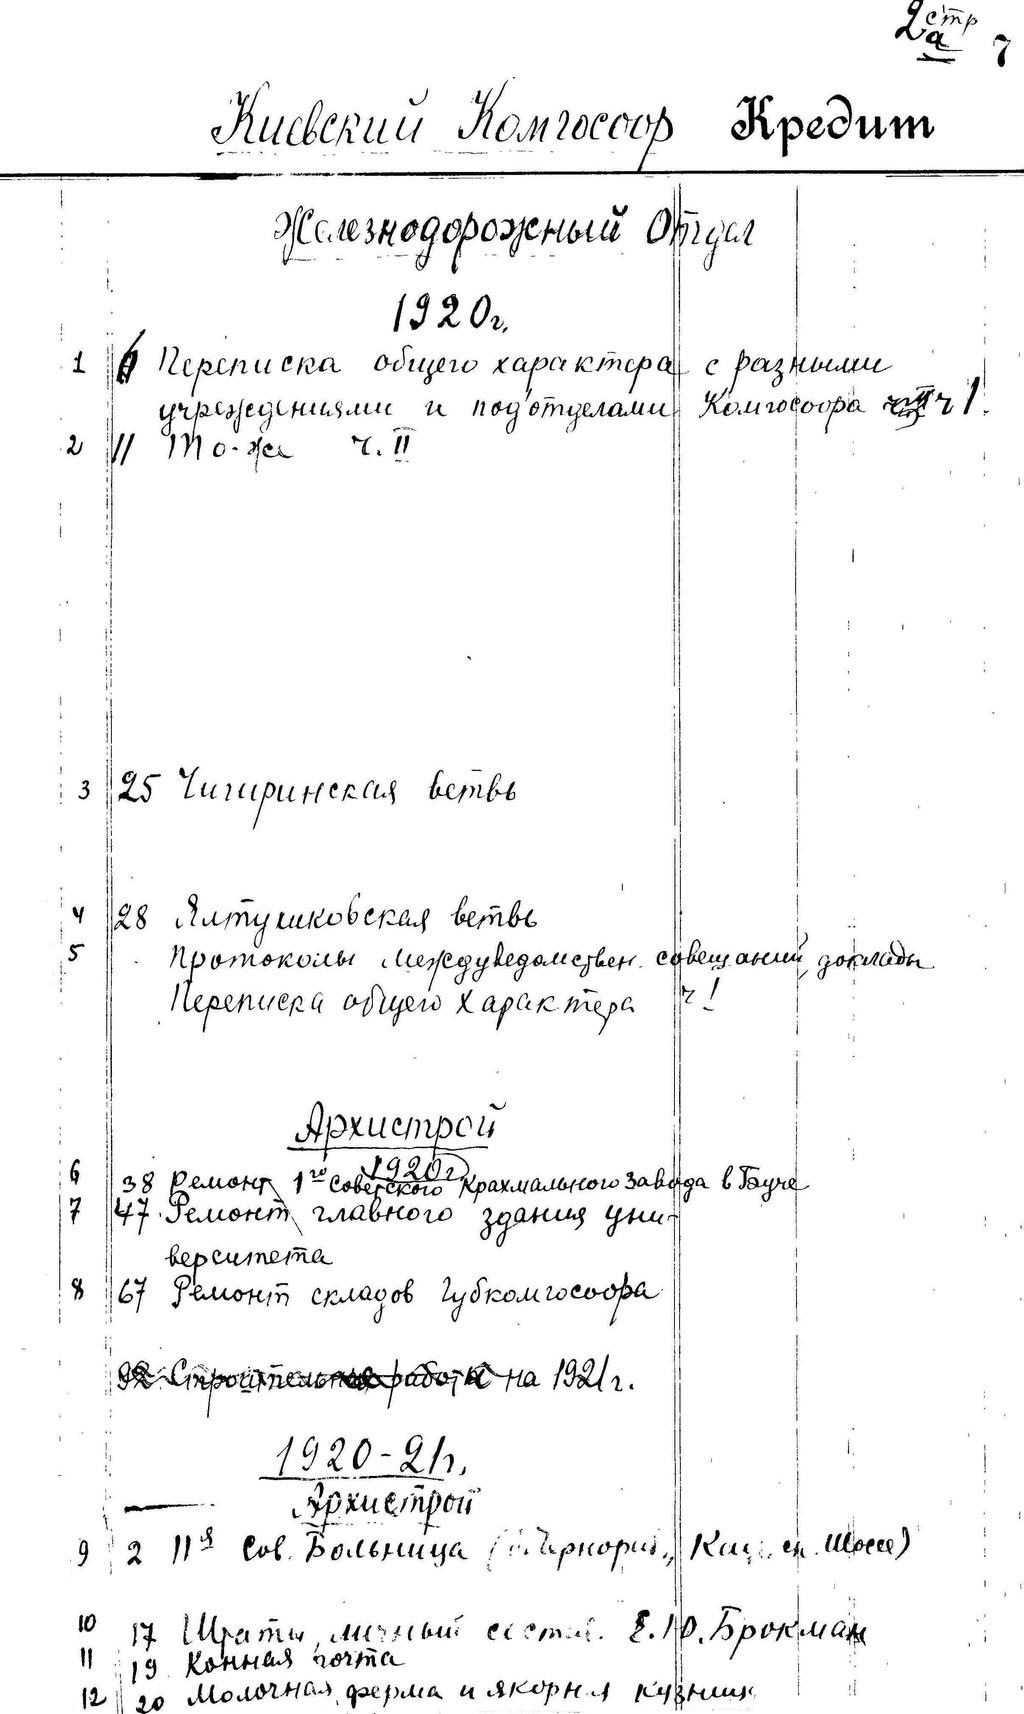 2а стр 7
Киевский Комгосоор Кредит
Железнодорожный Отдел
1920г.
1 6 Переписка общего характера с разными
учреждениями и подотделами Комгосоора ч I.
2 11 То-же ч. II
3 25 Чигиринская ветвь
4 28 Ялтушковская ветвь
5 Протоколы междуведомствен. совещаний, доклады
Переписка общего характера ч I
Архистрой
1920г
6 38 Ремонт 1го Советского Крахмального Завода в Буче
7 47 Ремонт главного здания уни-
верситета
8 67 Ремонт складов Губкомгосоора
92 Строительная работа на 1921г.
1920-21г.
Архистрой
9 2 11я Сов. Больница Шоссе)
10 17 Штаты, личный состав. Е.Ю. Брокман
11 19 Конная почта
12 20 Молочная ферма и якорная кузница